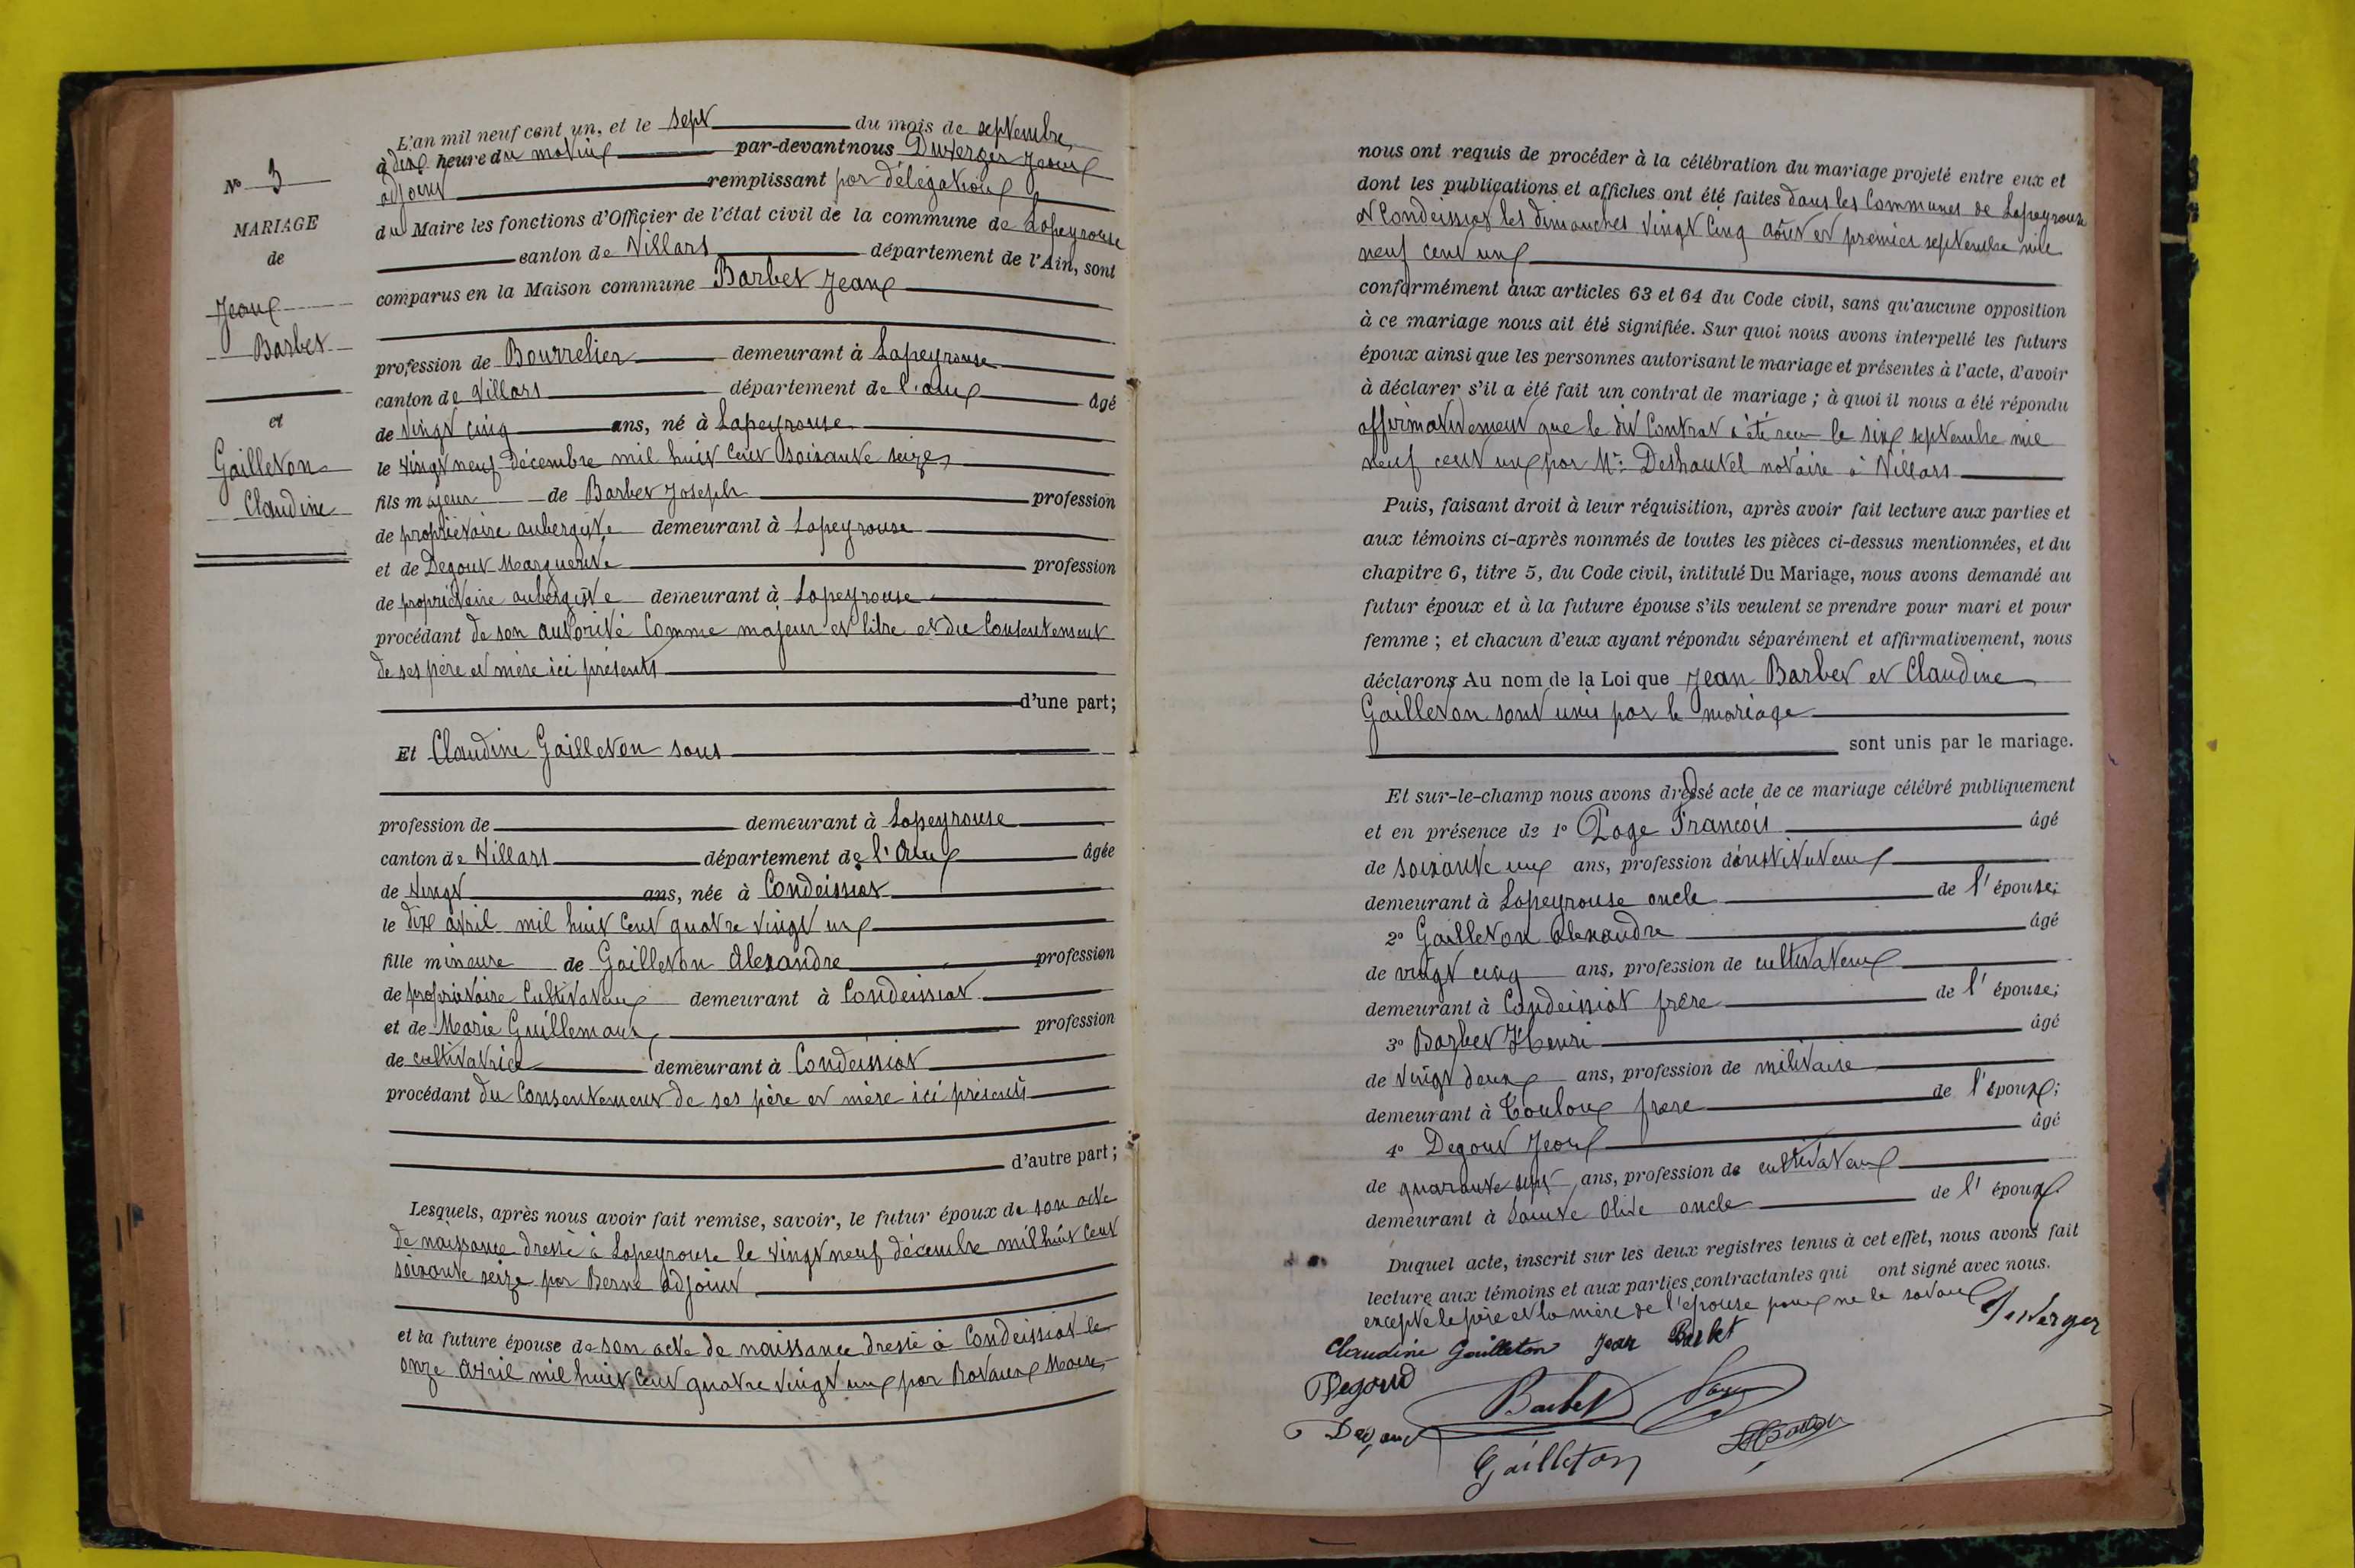 N° 3
MARIAGE
de
Jean
Barbet
et
Gailleton
Claudine
L'an mil neuf cent un, et le sept du mois de septembre,
à dix heure du matin par-devant nous Duverger Jean
adjoint remplissant par délégation
du Maire les fonctions d'Officier de l'état civil de la commune de Lapeyrouse
canton de Villars département de l'Ain, sont
comparus en la Maison commune Barbet Jean
profession de Bourrelier demeurant à Lapeyrouse
canton de Villars département de l'ain âgé
de vingt cinq ans, né à Lapeyrouse
le vingt neuf décembre mil huit cent soixante seize
fils majeur de Barbet Joseph profession
de propriétaire aubergiste demeurant à Lapeyrouse
et de Degout Marguerite profession
de propriétaire aubergiste demeurant à Lapeyrouse
procédant de son autorité comme majeur et libre et du consentement
de ses père et mère ici présents
d'une part;
Et Claudine Gailleton sans
profession de demeurant à Lapeyrouse
canton de Villars département de l'Ain âgée
de vingt ans, née à Condeissiat
le dix avril mil huit cent quatre vingt un
fille mineure de Gailleton Alexandre profession
de propriétaire cultivateur demeurant à Condeissiat
et de Marie Guillemaux profession
de cultivatrice demeurant à Condeissiat
procédant du consentement de ses père et mère ici présents
d'autre part;
Lesquels, après nous avoir fait remise, savoir, le futur époux de son acte
de naissance dressé à Lapeyrouse le vingt neuf décembre mil huit cent
soixante seize par Berne adjoint
et la future épouse de son acte de naissance dressé à Condeissiat le
onze avril mil huit cent quatre vingt un par Maire
nous ont requis de procéder à la célébration du mariage projeté entre eux et
dont les publications et affiches ont été faites dans les Communes de Lapeyrouse
et Condeissiat les dimanches vingt cinq août et premier septembre mil
neuf cent un
conformément aux articles 63 et 64 du Code civil, sans qu'aucune opposition
à ce mariage nous ait été signifiée. Sur quoi nous avons interpellé les futurs
époux ainsi que les personnes autorisant le mariage et présentes à l'acte, d'avoir
à déclarer s'il a été fait un contrat de mariage ; à quoi il nous a été répondu
affirmativement que le dit contrat a été reçu le six septembre mil
neuf cent un par Me Deshautel notaire à Villars
Puis, faisant droit à leur réquisition, après avoir fait lecture aux parties et
aux témoins ci-après nommés de toutes les pièces ci-dessus mentionnées, et du
chapitre 6, titre 5, du Code civil, intitulé Du Mariage, nous avons demandé au
futur époux et à la future épouse s'ils veulent se prendre pour mari et pour
femme ; et chacun d'eux ayant répondu séparément et affirmativement, nous
déclarons Au nom de la Loi que Jean Barbet et Claudine
Gailleton sont unis par le mariage
sont unis par le mariage.
Et sur-le-champ nous avons dressé acte de ce mariage célébré publiquement
et en présence de 1° Page François âgé
de soixante un ans, profession d'instituteur
demeurant à Lapeyrouse oncle de l'épouse;
2° Gailleton Alexandre âgé
de vingt cinq ans, profession de cultivateur
demeurant à Condeissiat frère de l'épouse;
3° Barbet Henri âgé
de vingt deux ans, profession de militaire
demeurant à Toulon frère de l'époux;
4° Degout Jean âgé
de quarante sept ans, profession de cultivateur
demeurant à Sainte Olive oncle de l'époux.
Duquel acte, inscrit sur les deux registres tenus à cet effet, nous avons fait
lecture aux témoins et aux parties contractantes qui ont signé avec nous.
excepté le père et la mère de l'épouse pour ne le savoir
Duverger
Claudine Gailleton Jean Barbet
Degoud
Barbet
Gailleton